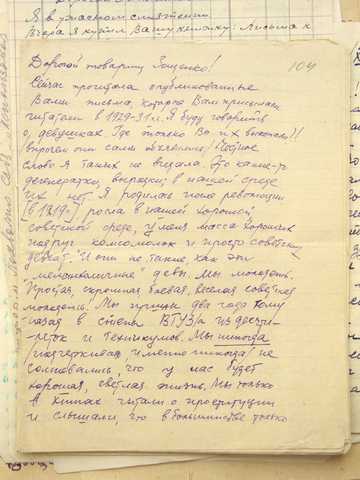 Я в ужасном смятении
Вчера я купил Вашу книжку: Письма к
104
Дорогой товарищ Зощенко!
Сейчас прочитала опубликованные
Вами письма, которые Вам присылали
читатели в 1929-31 г. Я буду говорить
о девушках. Где только Вы их выкопали!
Впрочем они сами объявились! Честное
слово я таких не видала. Это какие-то
дегенератки, выродки, в нашей среде
их нет. Я родилась после революции
[в 1919г.] росла в нашей хорошей,
советской среде, у меня масса хороших
подруг комсомолок и просто советских
девчат. И они не такие, как эти
"меланхоличные" девы. Мы молодежь.
Простая, скромная, боевая, веселая советская
молодежь! Мы пришли два года тому
назад в стены ВТУЗ/а из десяти-
леток и техникумов. Мы никогда
/подчеркиваю, именно никогда/ не
сомневались, что у нас будет
хорошая, светлая жизнь. Мы только
в книгах читали о проституции
и слышали, что в большинстве только